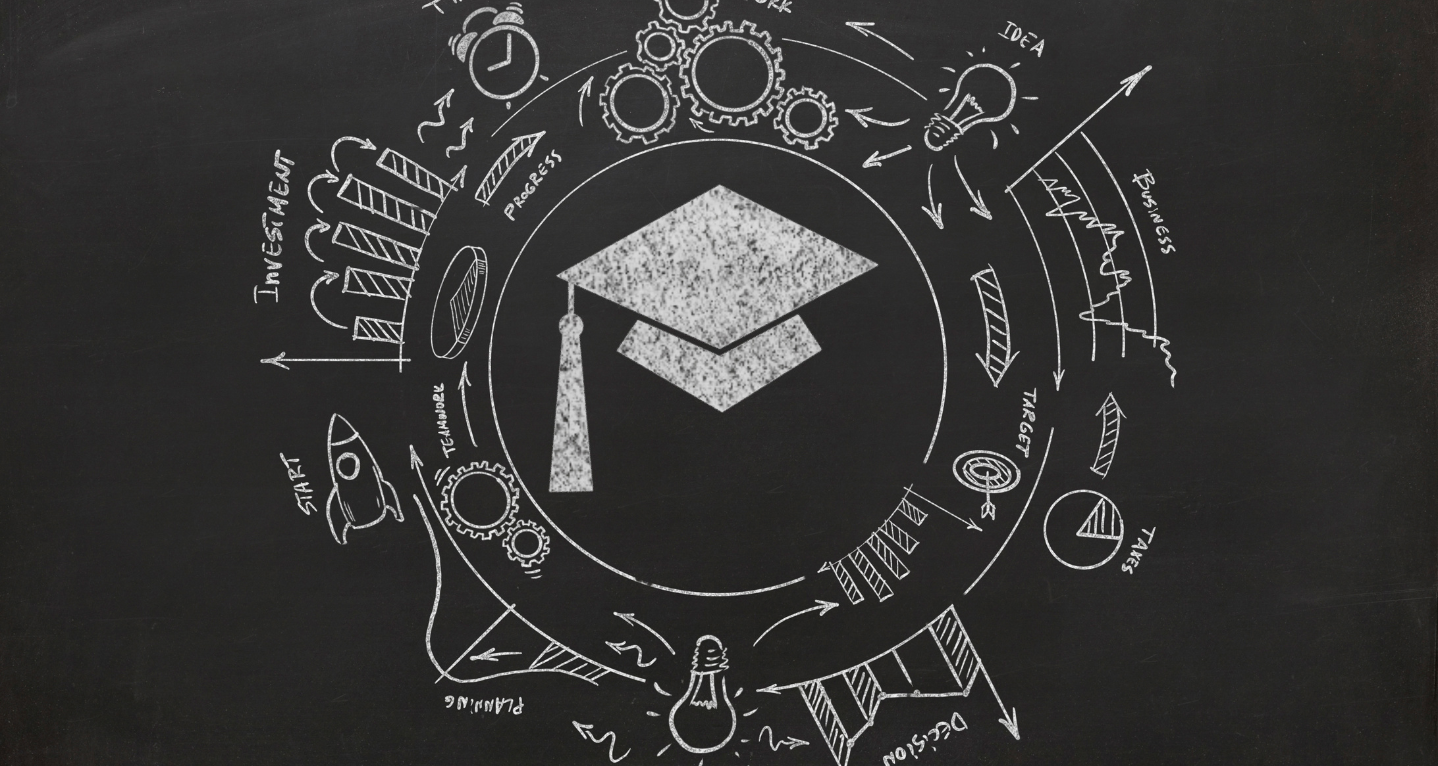 IDEA
BUSINESS
PROGRESS
INVESTMENT
TEAMWORK
TARGET
START
TAXES
PLANNING
DECISION